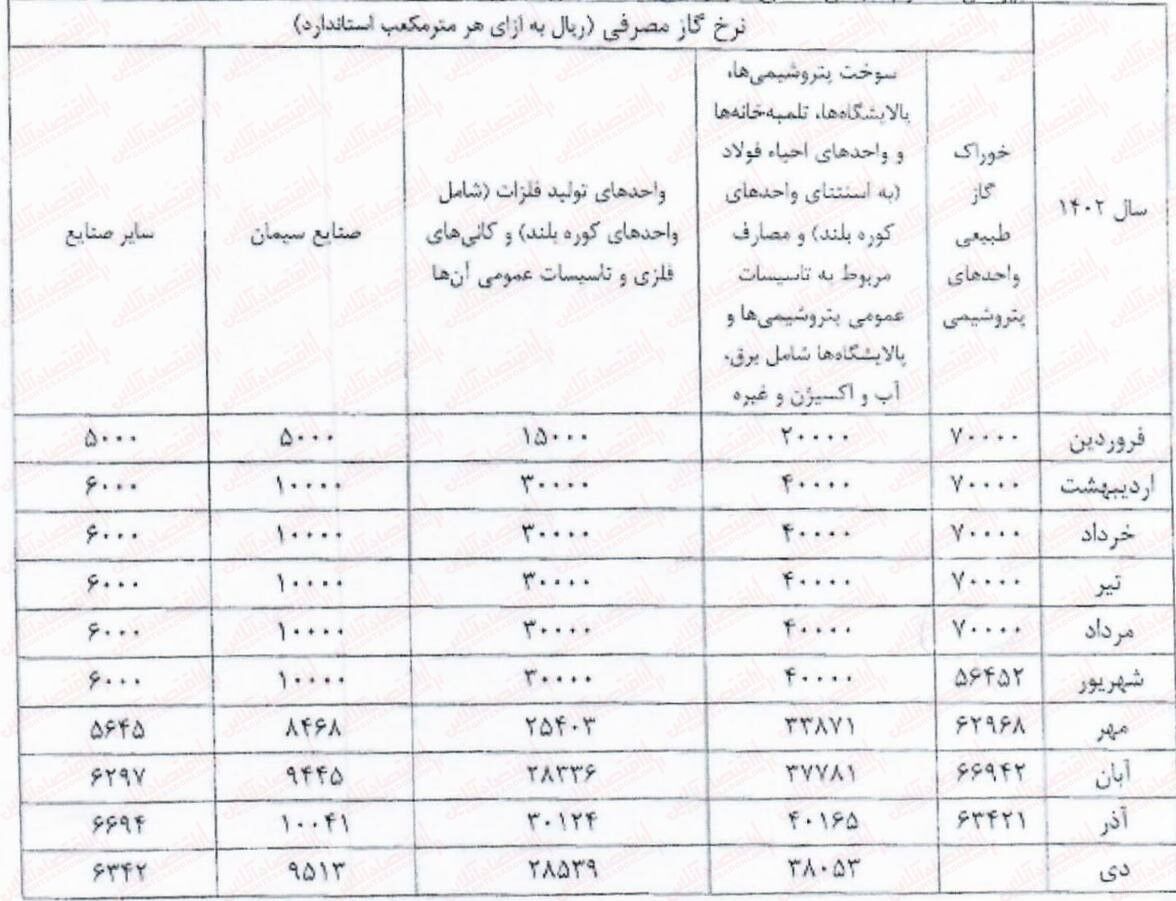 نرخ گاز مصرفی (ریال به ازای هر مترمکعب استاندارد)
سال ۱۴۰۲
خوراک
گاز
طبیعی
واحدهای
پتروشیمی
سوخت پتروشیمی‌ها،
پالایشگاه‌ها، تلمبه‌خانه‌ها
و واحدهای احیاء فولاد
(به استثنای واحدهای
کوره بلند) و مصارف
مربوط به تاسیسات
عمومی پتروشیمی‌ها و
پالایشگاه‌ها شامل برق،
آب و اکسیژن و غیره
واحدهای تولید فلزات (شامل
واحدهای کوره بلند) و کانی‌های
فلزی و تاسیسات عمومی آن‌ها
صنایع سیمان
سایر صنایع
فروردین ۷۰۰۰۰ ۲۰۰۰۰ ۱۵۰۰۰ ۵۰۰۰ ۵۰۰۰
اردیبهشت ۷۰۰۰۰ ۴۰۰۰۰ ۳۰۰۰۰ ۱۰۰۰۰ ۶۰۰۰
خرداد ۷۰۰۰۰ ۴۰۰۰۰ ۳۰۰۰۰ ۱۰۰۰۰ ۶۰۰۰
تیر ۷۰۰۰۰ ۴۰۰۰۰ ۳۰۰۰۰ ۱۰۰۰۰ ۶۰۰۰
مرداد ۷۰۰۰۰ ۴۰۰۰۰ ۳۰۰۰۰ ۱۰۰۰۰ ۶۰۰۰
شهریور ۵۶۴۵۲ ۴۰۰۰۰ ۳۰۰۰۰ ۱۰۰۰۰ ۶۰۰۰
مهر ۶۲۹۶۸ ۳۳۸۷۱ ۲۵۴۰۳ ۸۴۶۸ ۵۶۴۵
آبان ۶۶۹۴۲ ۳۷۷۸۱ ۲۸۳۳۶ ۹۴۴۵ ۶۲۹۷
آذر ۶۳۴۲۱ ۴۰۱۶۵ ۳۰۱۲۴ ۱۰۰۴۱ ۶۶۹۴
دی ۳۸۰۵۳ ۲۸۵۳۹ ۹۵۱۳ ۶۳۴۲